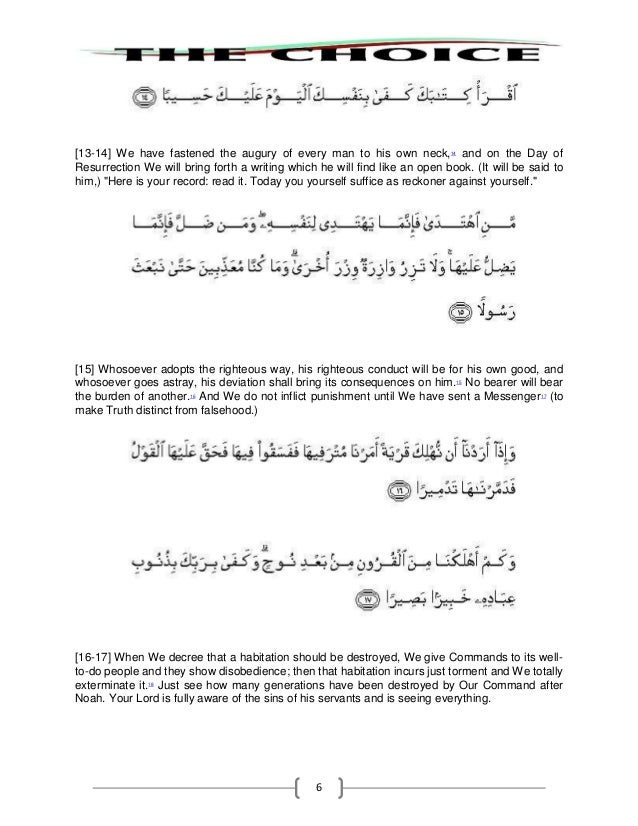 THE CHOICE
ٱقْرَأْ كِتَـٰبَكَ كَفَىٰ بِنَفْسِكَ ٱلْيَوْمَ عَلَيْكَ حَسِيبًا ١٤
[13-14] We have fastened the augury of every man to his own neck,14 and on the Day of
Resurrection We will bring forth a writing which he will find like an open book. (It will be said to
him,) "Here is your record: read it. Today you yourself suffice as reckoner against yourself."
مَّنِ ٱهْتَدَىٰ فَإِنَّمَا يَهْتَدِى لِنَفْسِهِۦ ۖ وَمَن ضَلَّ فَإِنَّمَا
يَضِلُّ عَلَيْهَا ۚ وَلَا تَزِرُ وَازِرَةٌ وِزْرَ أُخْرَىٰ ۗ وَمَا كُنَّا مُعَذِّبِينَ حَتَّىٰ نَبْعَثَ
رَسُولًا ١٥
[15] Whosoever adopts the righteous way, his righteous conduct will be for his own good, and
whosoever goes astray, his deviation shall bring its consequences on him.15 No bearer will bear
the burden of another.16 And We do not inflict punishment until We have sent a Messenger17 (to
make Truth distinct from falsehood.)
وَإِذَآ أَرَدْنَآ أَن نُّهْلِكَ قَرْيَةً أَمَرْنَا مُتْرَفِيهَا فَفَسَقُوا۟ فِيهَا فَحَقَّ عَلَيْهَا ٱلْقَوْلُ
فَدَمَّرْنَـٰهَا تَدْمِيرًا ١٦
وَكَمْ أَهْلَكْنَا مِنَ ٱلْقُرُونِ مِنۢ بَعْدِ نُوحٍ ۗ وَكَفَىٰ بِرَبِّكَ بِذُنُوبِ
عِبَادِهِۦ خَبِيرًۢا بَصِيرًا ١٧
[16-17] When We decree that a habitation should be destroyed, We give Commands to its well-
to-do people and they show disobedience; then that habitation incurs just torment and We totally
exterminate it.18 Just see how many generations have been destroyed by Our Command after
Noah. Your Lord is fully aware of the sins of his servants and is seeing everything.
6